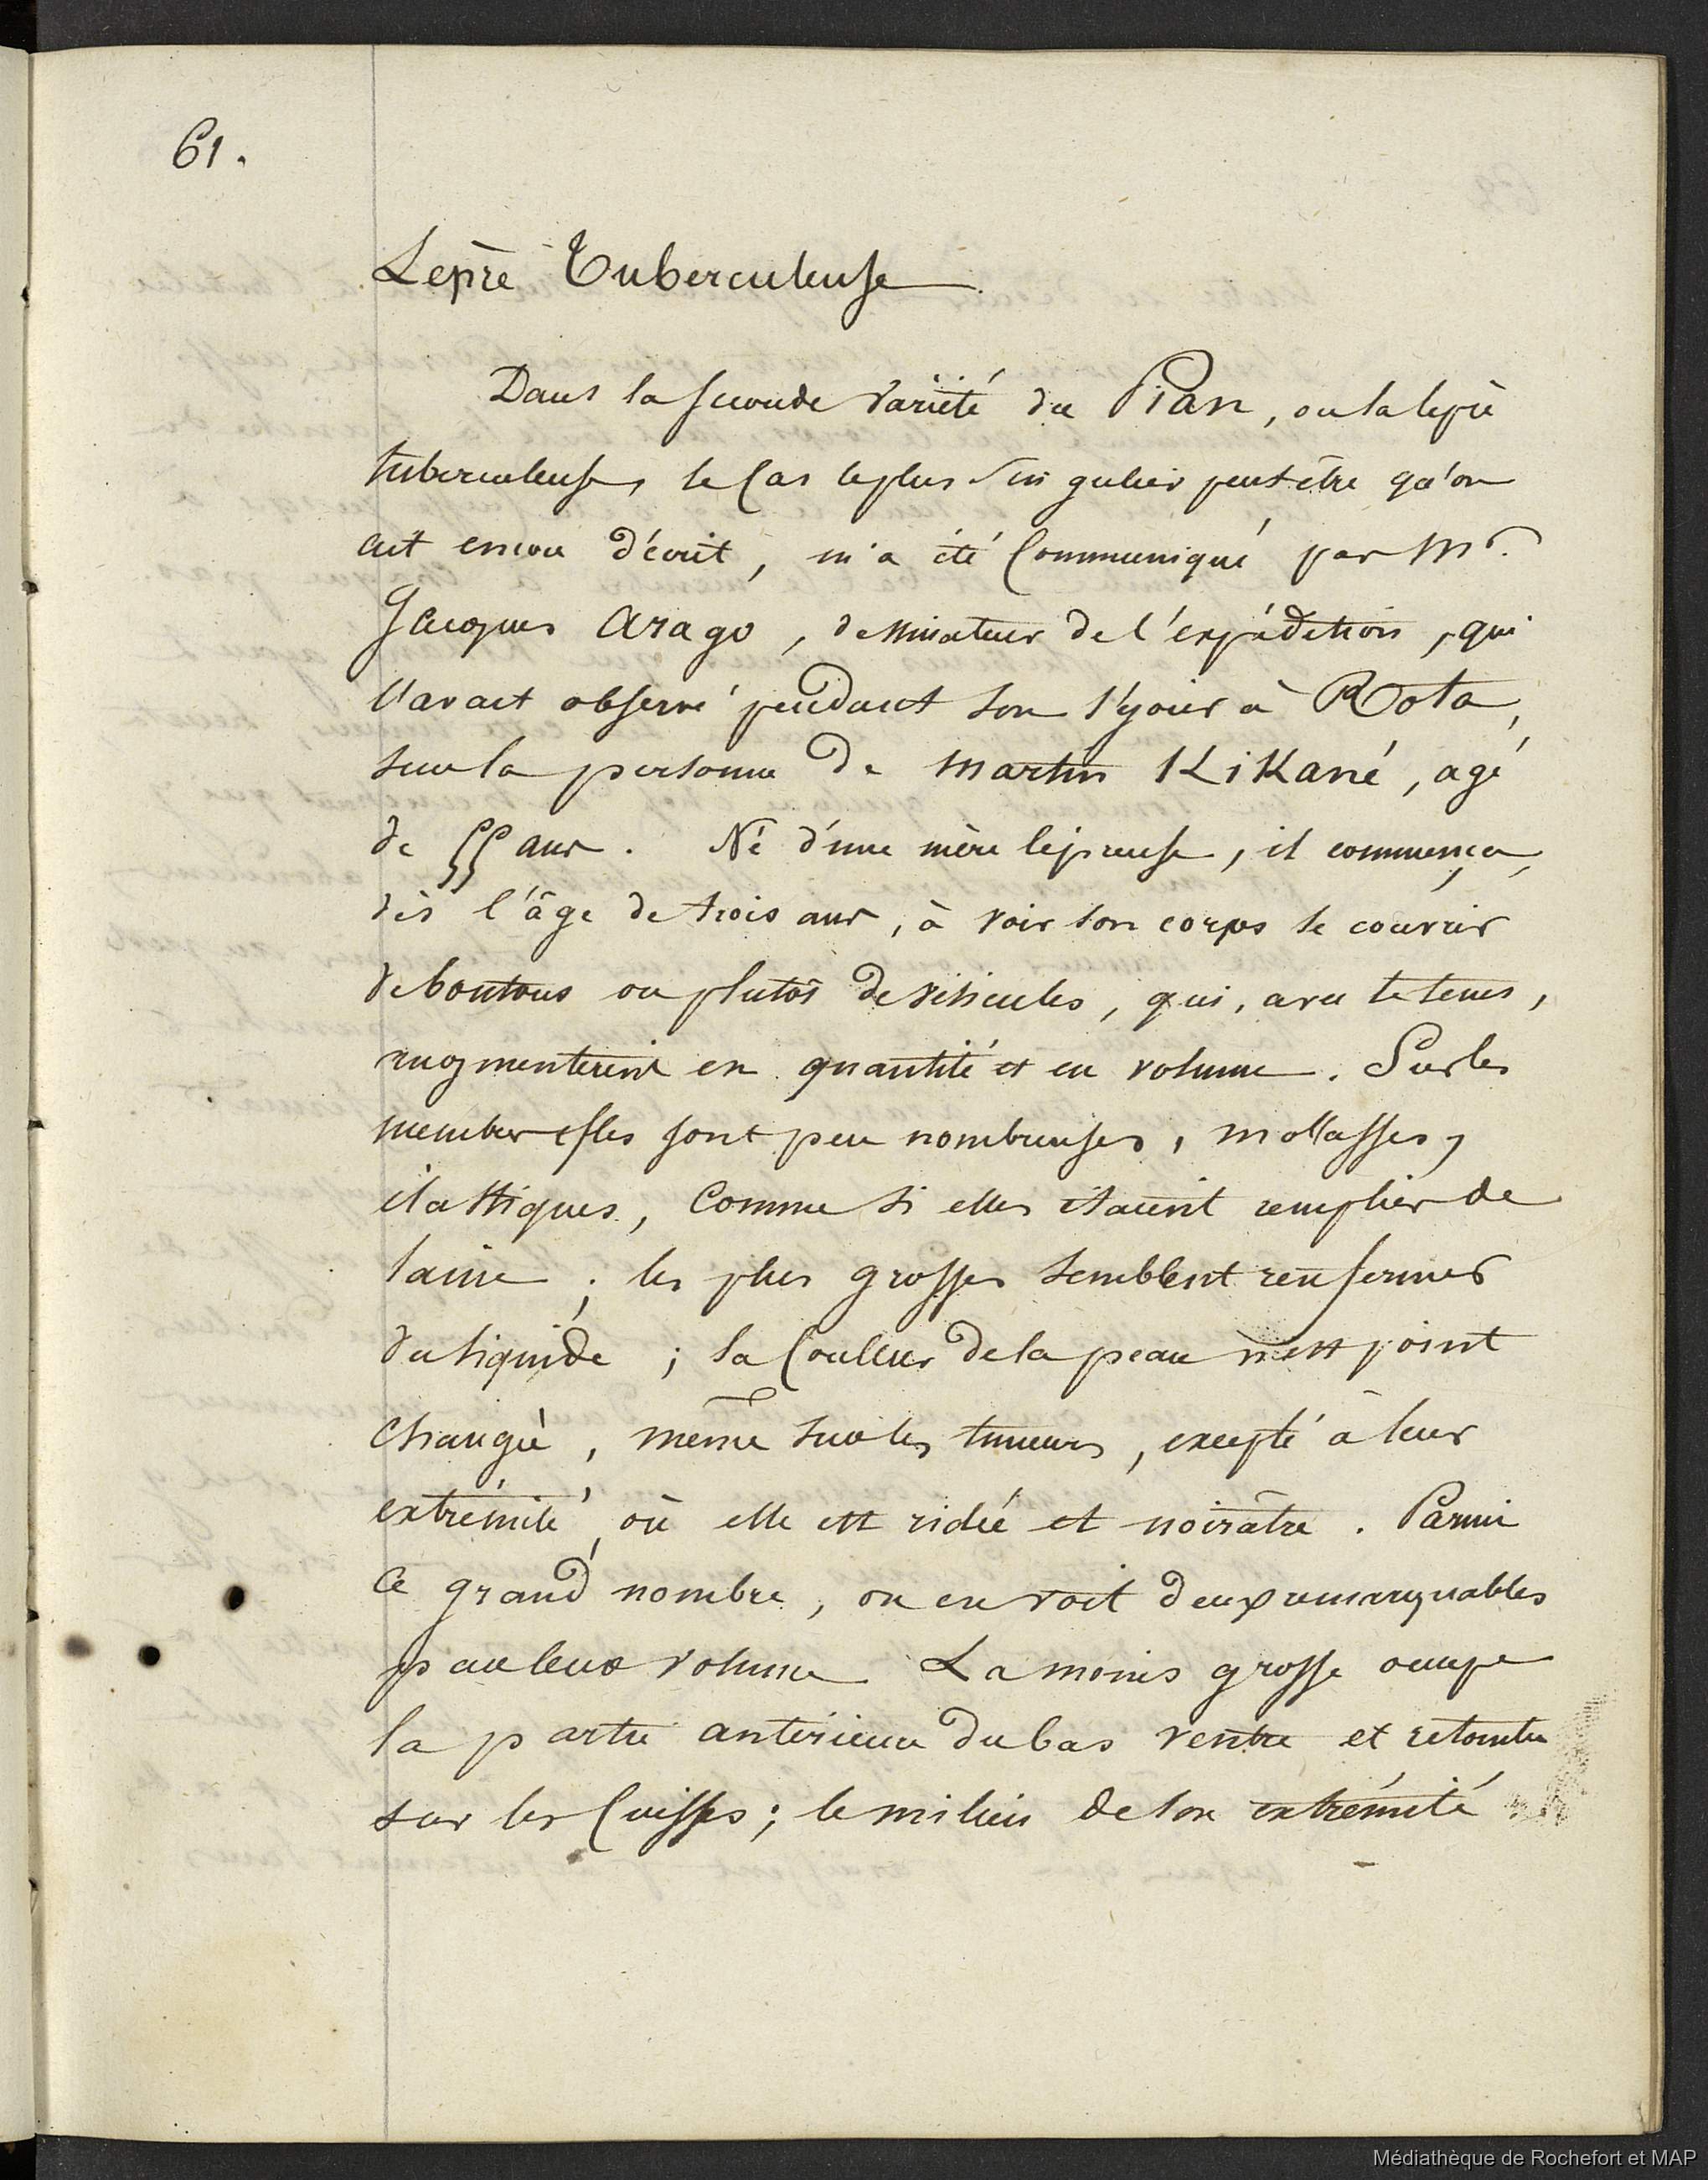 61.
Lèpre Tuberculeuse
Dans la seconde variété du Pian, ou la lèpre
tuberculeuse, le Cas le plus singulier peut être qu'on
ait encore décrit, m'a été Communiqué par Mr.
Jacques Arago, dessinateur de l'expédition, qui
l'avait observé pendant son séjour à Rota,
sur la personne de Martin Kikané, agé
de 55 ans. Né d'une mère lépreuse, il commença,
dès l'âge de trois ans, à voir son corps se couvrir
de boutons ou plutôt de vésicules, qui, avec le tems,
augmentèrent en quantité et en volume. Sur les
membres elles sont peu nombreuses, mollasses,
élastiques, Comme si elles étaient remplies de
laine ; les plus grosses semblent renfermer
du liquide ; la Couleur de la peau n'est point
changée, même sur les tumeurs, excepté à leur
extrémité, où elle est ridée et noirâtre. Parmi
ce grand nombre, on en voit deux remarquables
par leur volume La moins grosse occupe
la partie antérieure du bas ventre et retombe
sur les Cuisses ; le milieu de son extrémité
Médiathèque de Rochefort et MAP